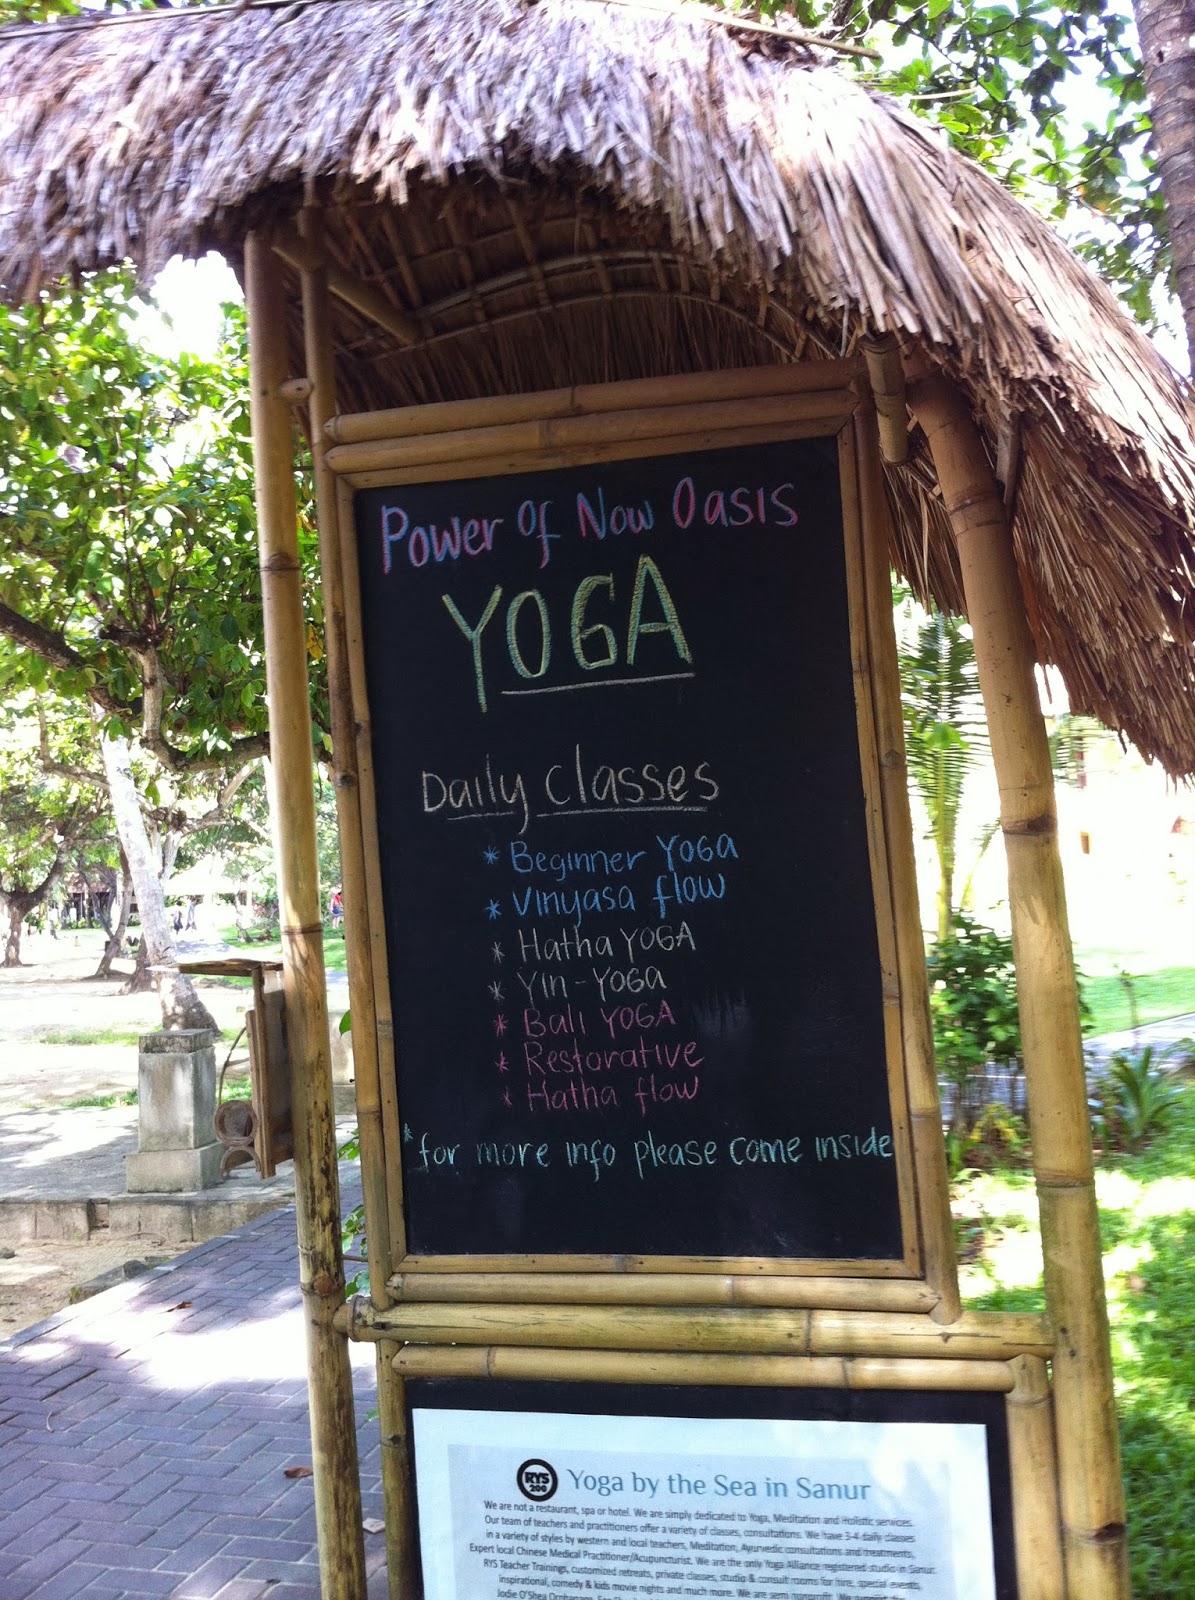 Power of Now Oasis
YOGA
Daily Classes
* Beginner YOGA
* Vinyasa flow
* Hatha YOGA
* Yin-YOGA
* Bali YOGA
* Restorative
* Hatha flow
* for more info please come inside
RYS 200
Yoga by the Sea in Sanur
We are not a restaurant, spa or hotel. We are simply dedicated to Yoga, Meditation and Holistic services.
Our team of teachers and practitioners offer a variety of classes, consultations. We have 3-4 daily classes
in a variety of styles by western and local teachers, Meditation, Ayurvedic consultations and treatments,
Expert local Chinese Medical Practitioner/Acupuncturist. We are the only Yoga Alliance registered studio in Sanur.
RYS Teacher Trainings, customized retreats, private classes, studio & consult rooms for hire, special events,
inspirational, comedy & kids movie nights and much more. We are semi nonprofit. We support the
Jodie O'Shea Orphanage,